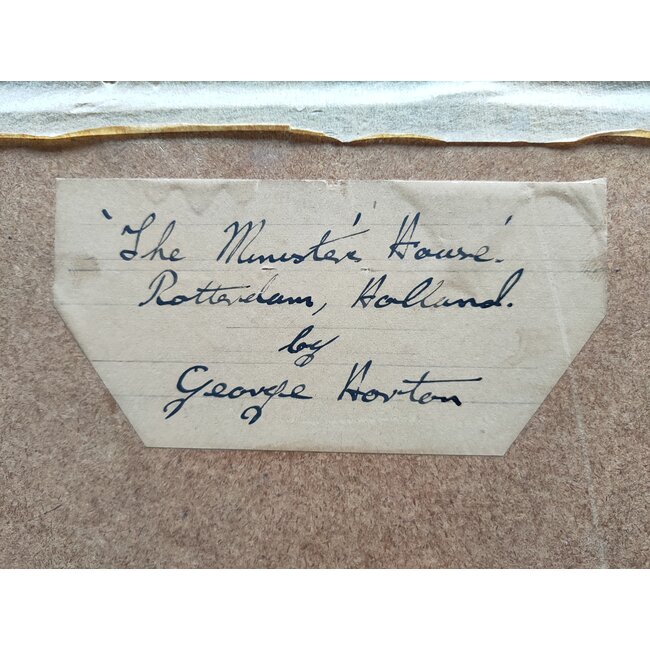 'The Minister's House'.
Rotterdam, Holland.
by
George Horton